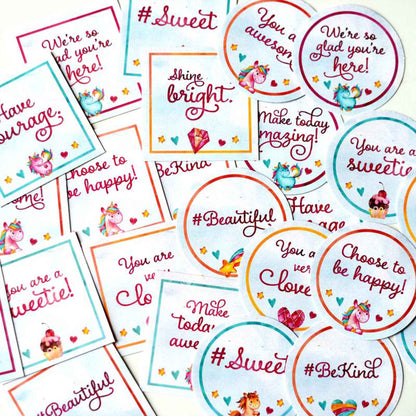 We're so
glad you're
here!
#Sweet
You a
awesom
We're so
glad you're
here!
Have
ourage,
Shine
bright.
Make today
mazing!
You are a
sweetie!
Choose to
be happy!
BeKind
#Beautiful
Have
ourage
You are a
weetie!
You a
ver
Clo
You a
ver
love
Choose to
be happy!
Make
toda
awe
#Sweet
#BeKind
#Beautiful